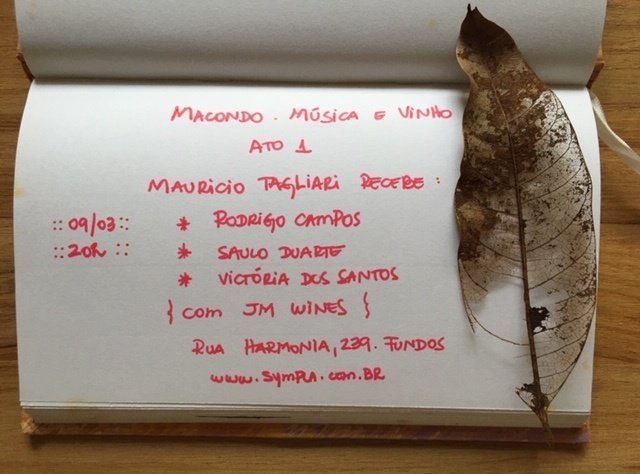 MACONDO. MÚSICA E VINHO
ATO 1
MAURICIO TAGLIARI RECEBE:
:: 09/03 :: * RODRIGO CAMPOS
:: 20h :: * SAULO DUARTE
* VICTÓRIA DOS SANTOS
{ com JM WINES }
RUA HARMONIA, 239. FUNDOS
www.sympla.com.BR